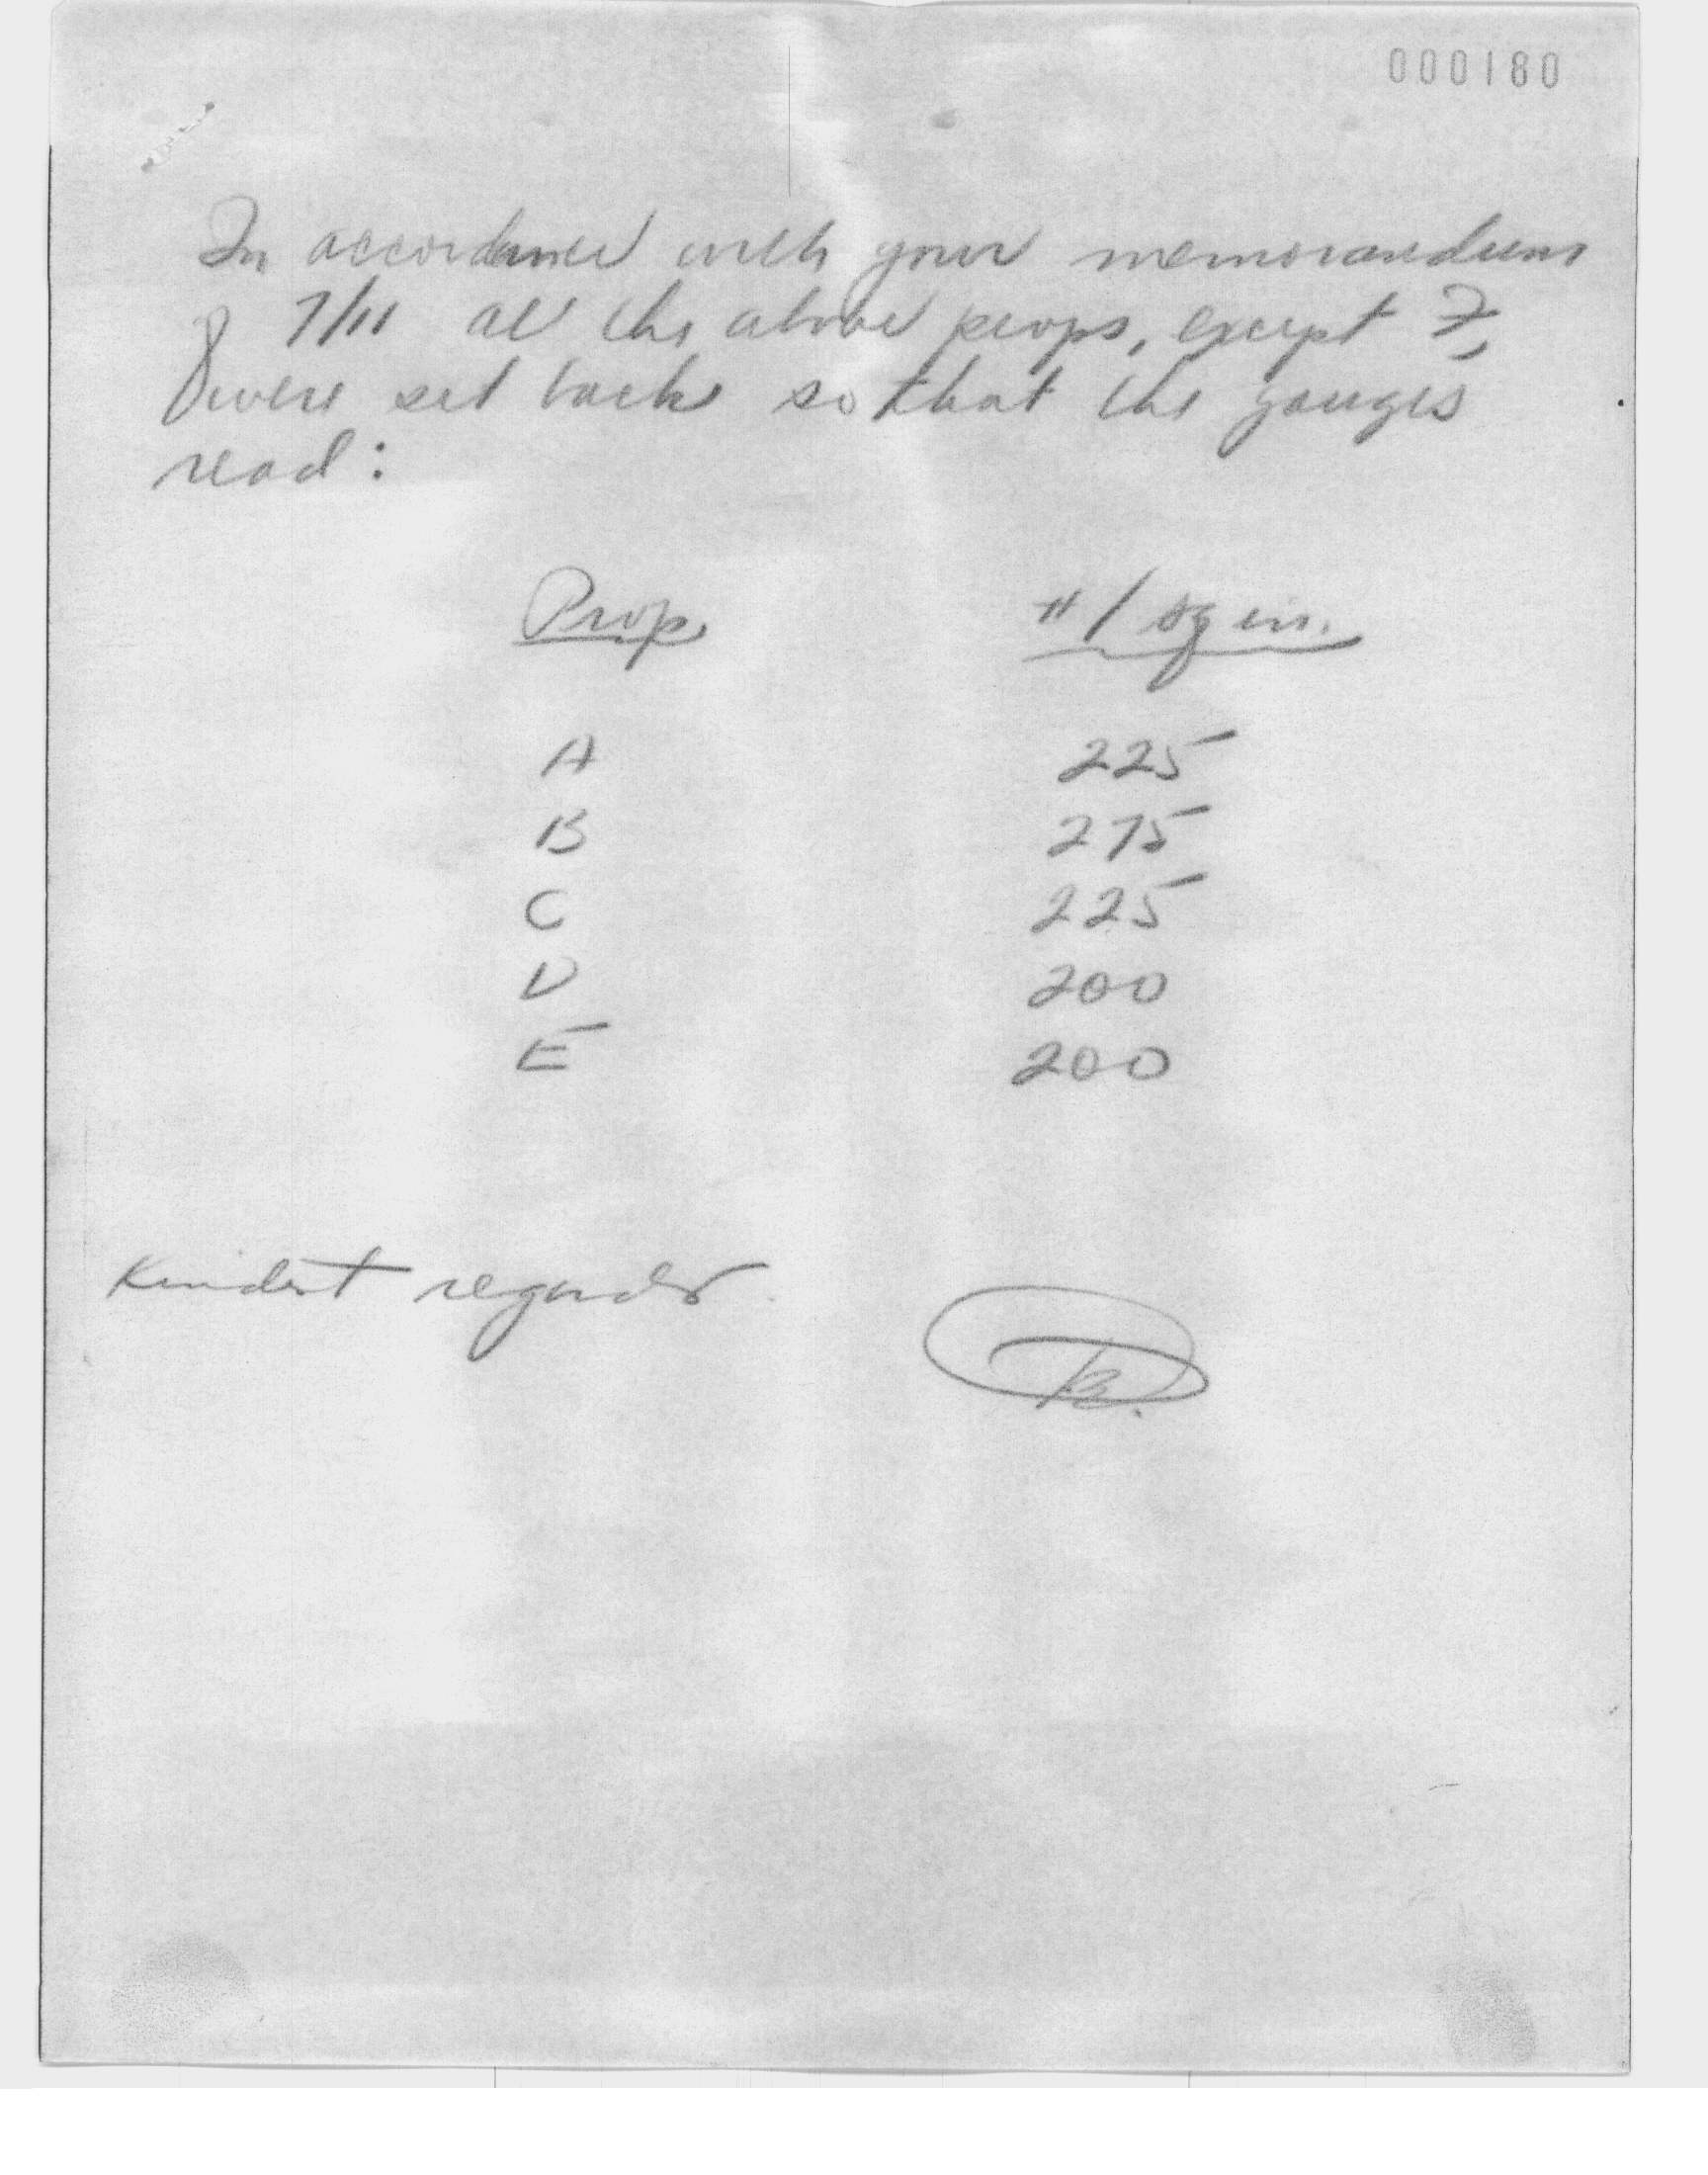 000180
In accordance with your memorandum
of 7/11 all the above props, except F,
were set back so that the gauges
read:
Prop. #/sq in.
A 225
B 275
C 225
D 200
E 200
Kindest regards